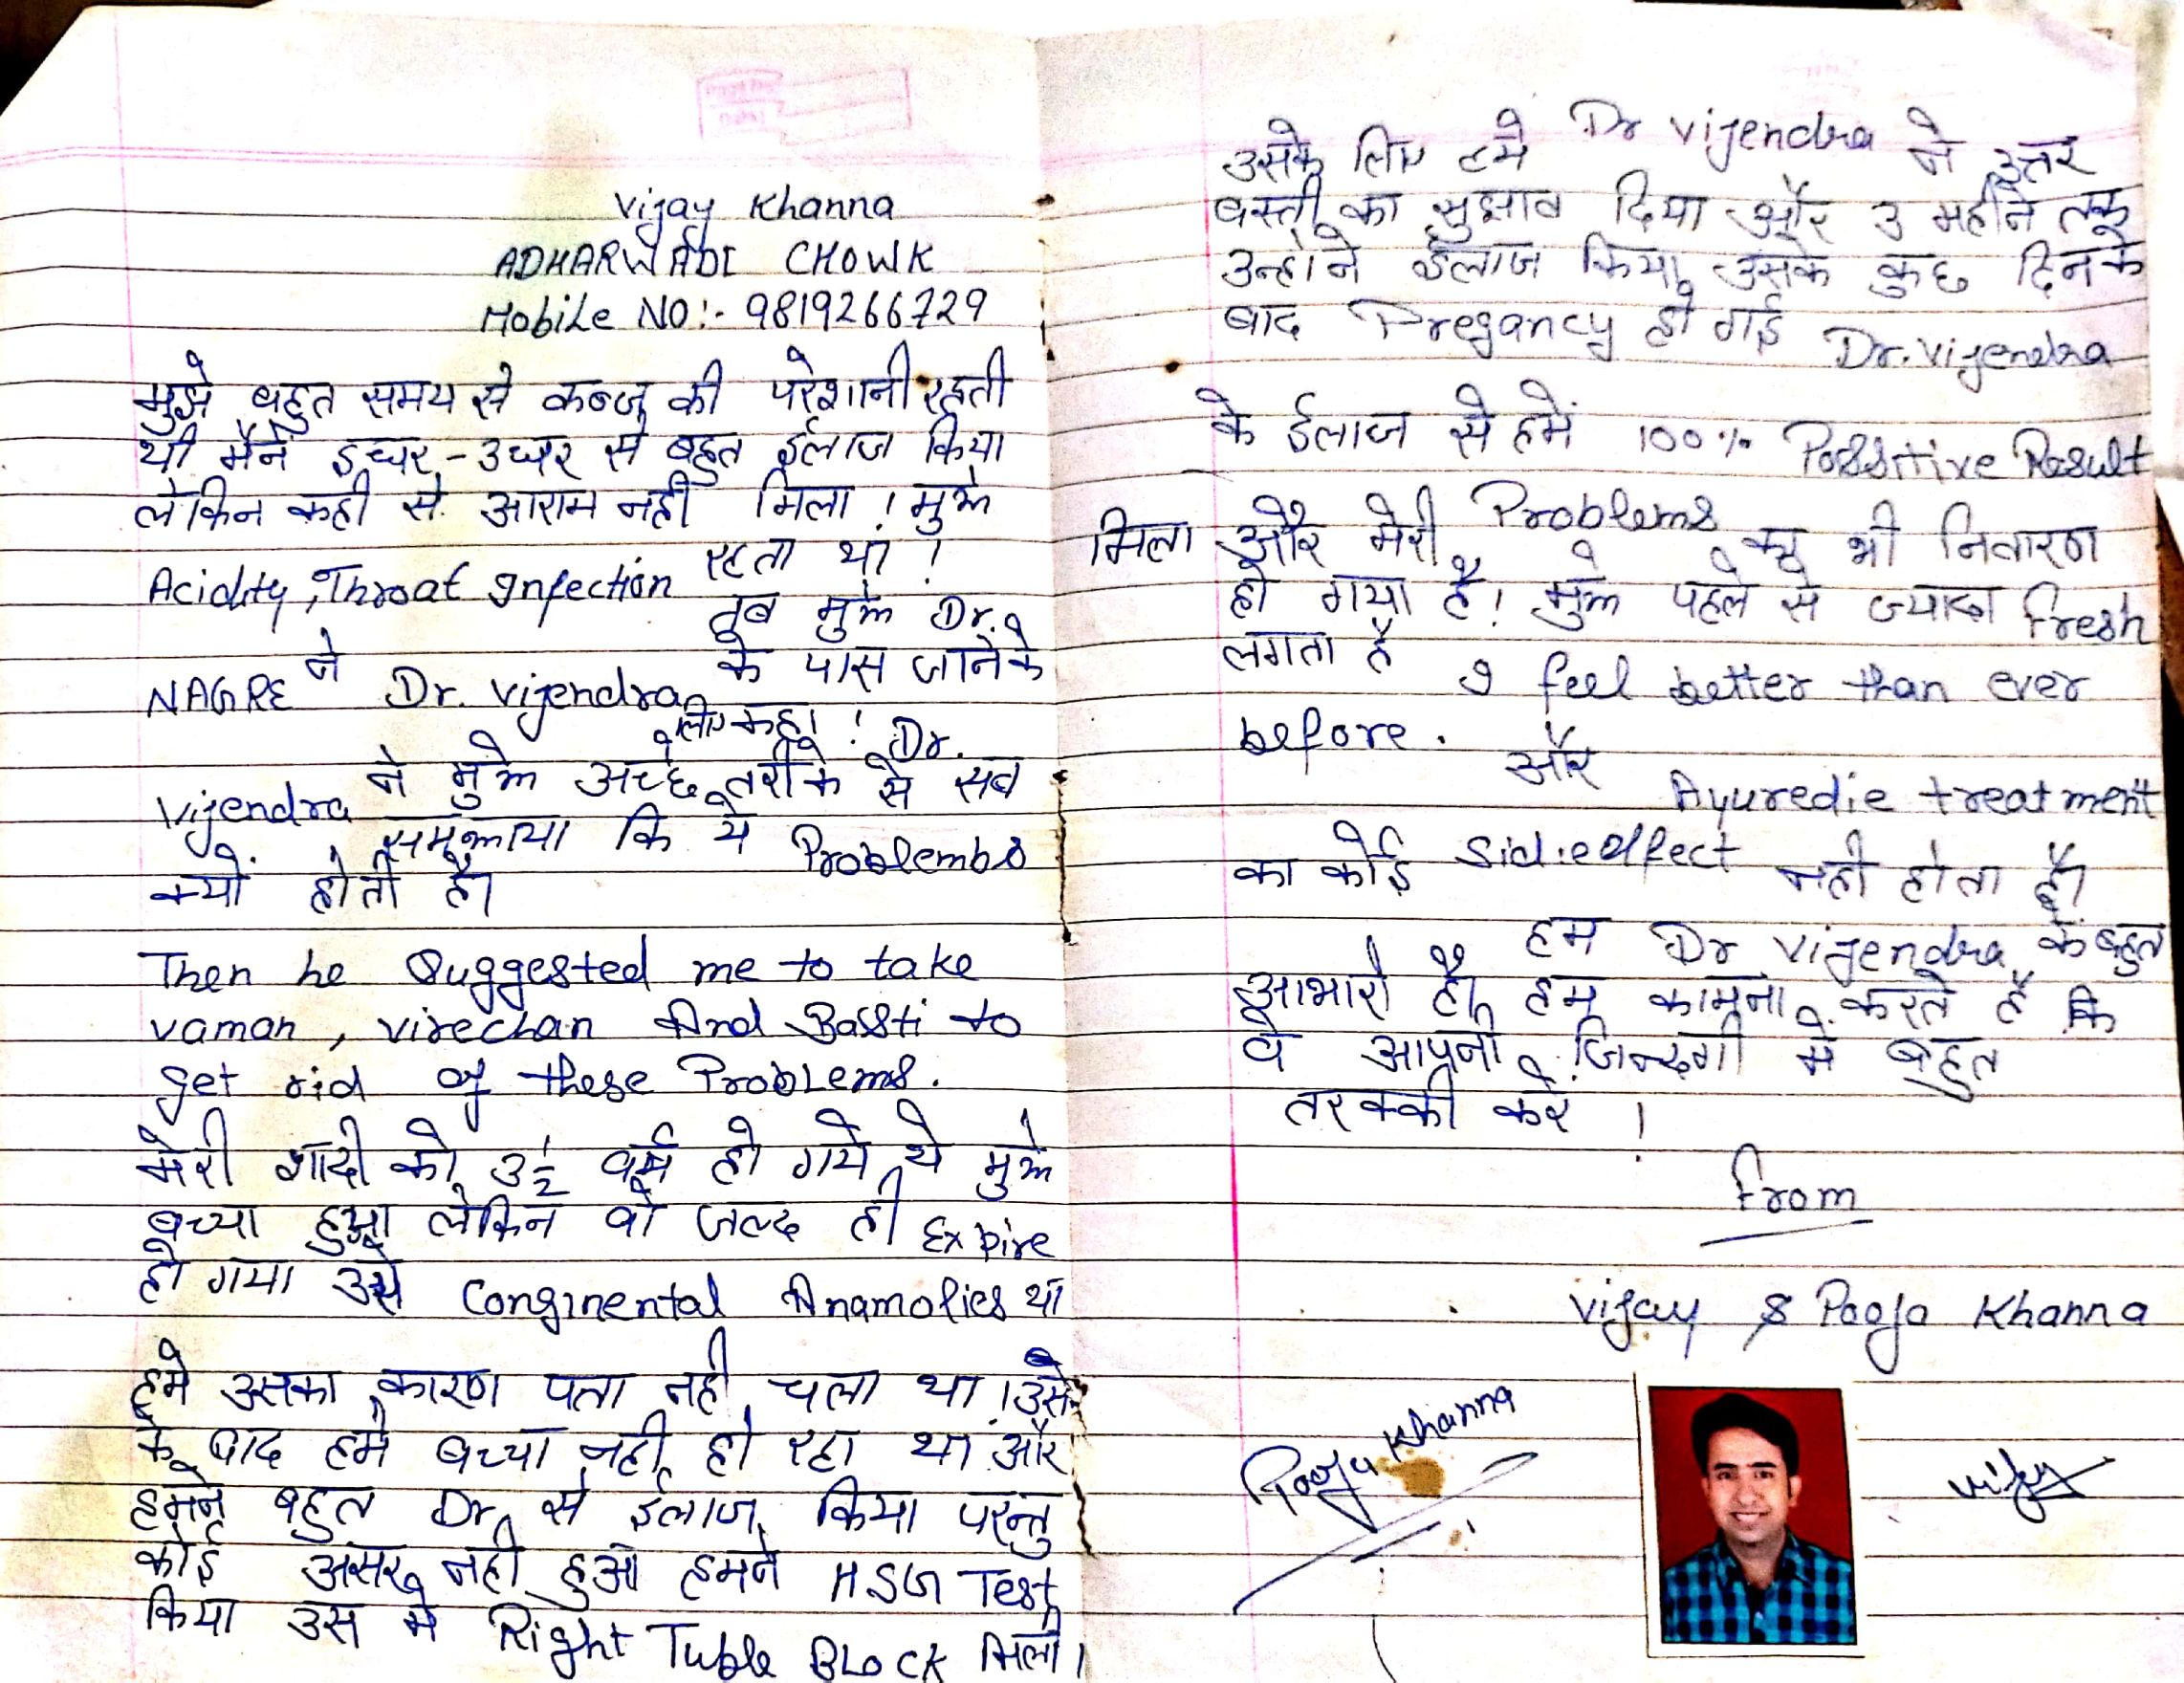 Vijay Khanna
ADHARWADI CHOWK
Mobile NO:- 9819266729
मुझे बहुत समय से कब्ज की परेशानी रहती
थी मैने इधर-उधर से बहुत ईलाज किया
लेकिन कही से आराम नही मिला ! मुझे
Acidity, Throat Infection रहता था !
तब मुझे Dr.
NAGRE ने Dr. Vijendra के पास जानेके
लिए कहा ! Dr.
Vijendra ने मुझे अच्छे तरीके से सब
समझाया कि ये Problembs
क्यों होती है।
Then he suggested me to take
vaman, virechan And Bassti to
get rid of these Problems.
मेरी शादी को 3½ वर्ष हो गये थे मुझे
बच्चा हुआ लेकिन वो जल्द ही Expire
हो गया उसे Conginental Anamolies था
हमे उसका कारण पता नही चला था ! उसे
के बाद हमे बच्चा नही हो रहा था और
हमने बहुत Dr. से ईलाज किया परन्तु
कोई असर नही हुआ हमने HSG Test
किया उस मे Right Tubble BLOCK मिली।
उसके लिए हमे Dr Vijendra ने उत्तर
बस्ती का सुझाव दिया और 3 महीने तक
उन्होने ईलाज किया उसके कुछ दिनके
बाद Pregancy हो गई Dr. Vijendra
के ईलाज से हमें 100% Possitive Result
मिला और मेरी Problems का भी निवारण
हो गया है! मुझे पहले से ज्यादा fresh
लगता है I feel better than ever
before. और Ayuredie treatment
का कोई Sidieeffect नही होता है।
हम Dr Vijendra के बहुत
आभारी है। हम कामना करते है कि
वे आपनी जिन्दगी मे बहुत
तरक्की करे ।
From
Vijay & Pooja Khanna
Pooja Khanna
Vijay